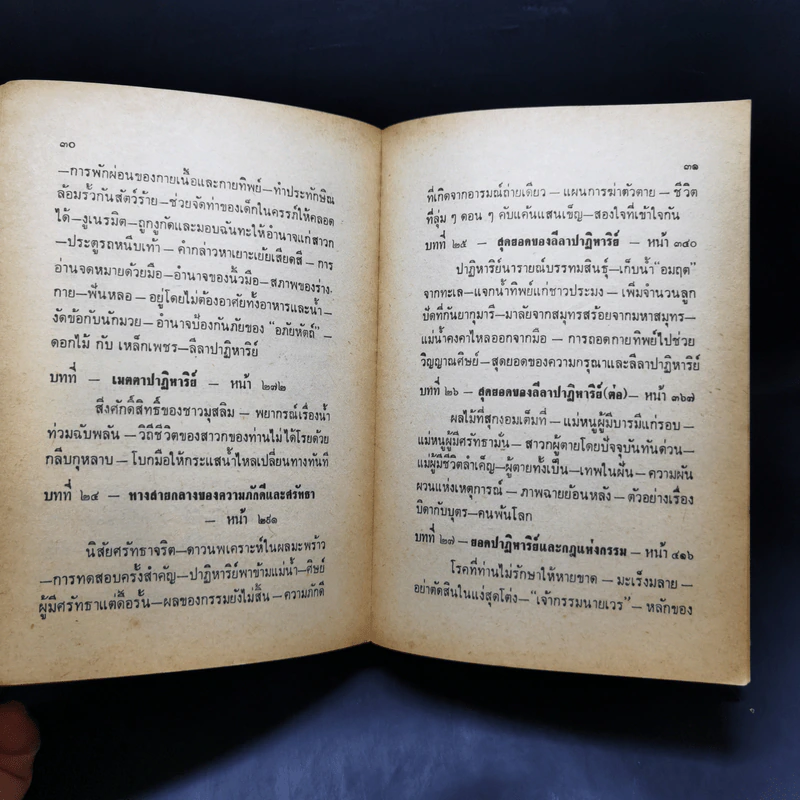 ๓๐
—การพักผ่อนของกายเนื้อและกายทิพย์—ทำประทักษิณ
ล้อมรั้วกันสัตว์ร้าย—ช่วยจัดท่าของเด็กในครรภ์ให้คลอด
ได้—งูเนรมิต—ถูกงูกัดและมอบฉันทะให้อำนาจแก่สาวก
—ประตูรถหนีบเท้า—คำกล่าวหาเยาะเย้ยเสียดสี—การ
อ่านจดหมายด้วยมือ—อำนาจของนิ้วมือ—สภาพของร่าง-
กาย—ฟันหลอ—อยู่โดยไม่ต้องอาศัยทั้งอาหารและน้ำ—
งัดข้อกับนักมวย—อำนาจป้องกันภัยของ "อภัยหัตถ์"—
ดอกไม้ กับ เหล็กเพชร—ลีลาปาฏิหาริย์
บทที่ — เมตตาปาฏิหาริย์ — หน้า ๒๗๒
สิ่งศักดิ์สิทธิ์ของชาวมุสลิม—พยากรณ์เรื่องน้ำ
ท่วมฉับพลัน—วิถีชีวิตของสาวกของท่านไม่ได้โรยด้วย
กลีบกุหลาบ—โบกมือให้กระแสน้ำไหลเปลี่ยนทางทันที
บทที่ ๒๔ — ทางสายกลางของความภักดีและศรัทธา
— หน้า ๒๙๑
นิสัยศรัทธาจริต—ดาวนพเคราะห์ในผลมะพร้าว
—การทดสอบครั้งสำคัญ—ปาฏิหาริย์พาข้ามแม่น้ำ—ศิษย์
ผู้มีศรัทธาแต่ดื้อรั้น—ผลของกรรมยังไม่สิ้น—ความภักดี
๓๑
ที่เกิดจากอารมณ์ถ่ายเดียว—แผนการฆ่าตัวตาย—ชีวิต
ที่ลุ่ม ๆ ดอน ๆ คับแค้นแสนเข็ญ—สองใจที่เข้าใจกัน
บทที่ ๒๕ — สุดยอดของลีลาปาฏิหาริย์ — หน้า ๓๔๐
ปาฏิหาริย์นารายณ์บรรทมสินธุ์—เก็บน้ำ "อมฤต"
จากทะเล—แจกน้ำทิพย์แก่ชาวประมง—เพิ่มจำนวนลูก
ปัดที่กันยากุมารี—มาลัยจากสมุทรสร้อยจากมหาสมุทร—
แม่น้ำคงคาไหลออกจากมือ—การถอดกายทิพย์ไปช่วย
วิญญาณศิษย์—สุดยอดของความกรุณาและลีลาปาฏิหาริย์
บทที่ ๒๖ — สุดยอดของลีลาปาฏิหาริย์(ต่อ)— หน้า ๓๖๗
ผลไม้ที่สุกงอมเต็มที่—แม่หนูผู้มีบารมีแก่รอบ—
แม่หนูผู้มีศรัทธามั่น—สาวกผู้ตายโดยปัจจุบันทันด่วน—
แม่ผู้มีชีวิตลำเค็ญ—ผู้ตายทั้งเป็น—เทพในฝัน—ความผัน
ผวนแห่งเหตุการณ์—ภาพฉายย้อนหลัง—ตัวอย่างเรื่อง
บิดากับบุตร—คนพ้นโลก
บทที่ ๒๗ — ยอดปาฏิหาริย์และกฎแห่งกรรม — หน้า ๔๑๖
โรคที่ท่านไม่รักษาให้หายขาด—มะเร็งมลาย—
อย่าตัดสินในแง่สุดโต่ง—"เจ้ากรรมนายเวร"—หลักของ